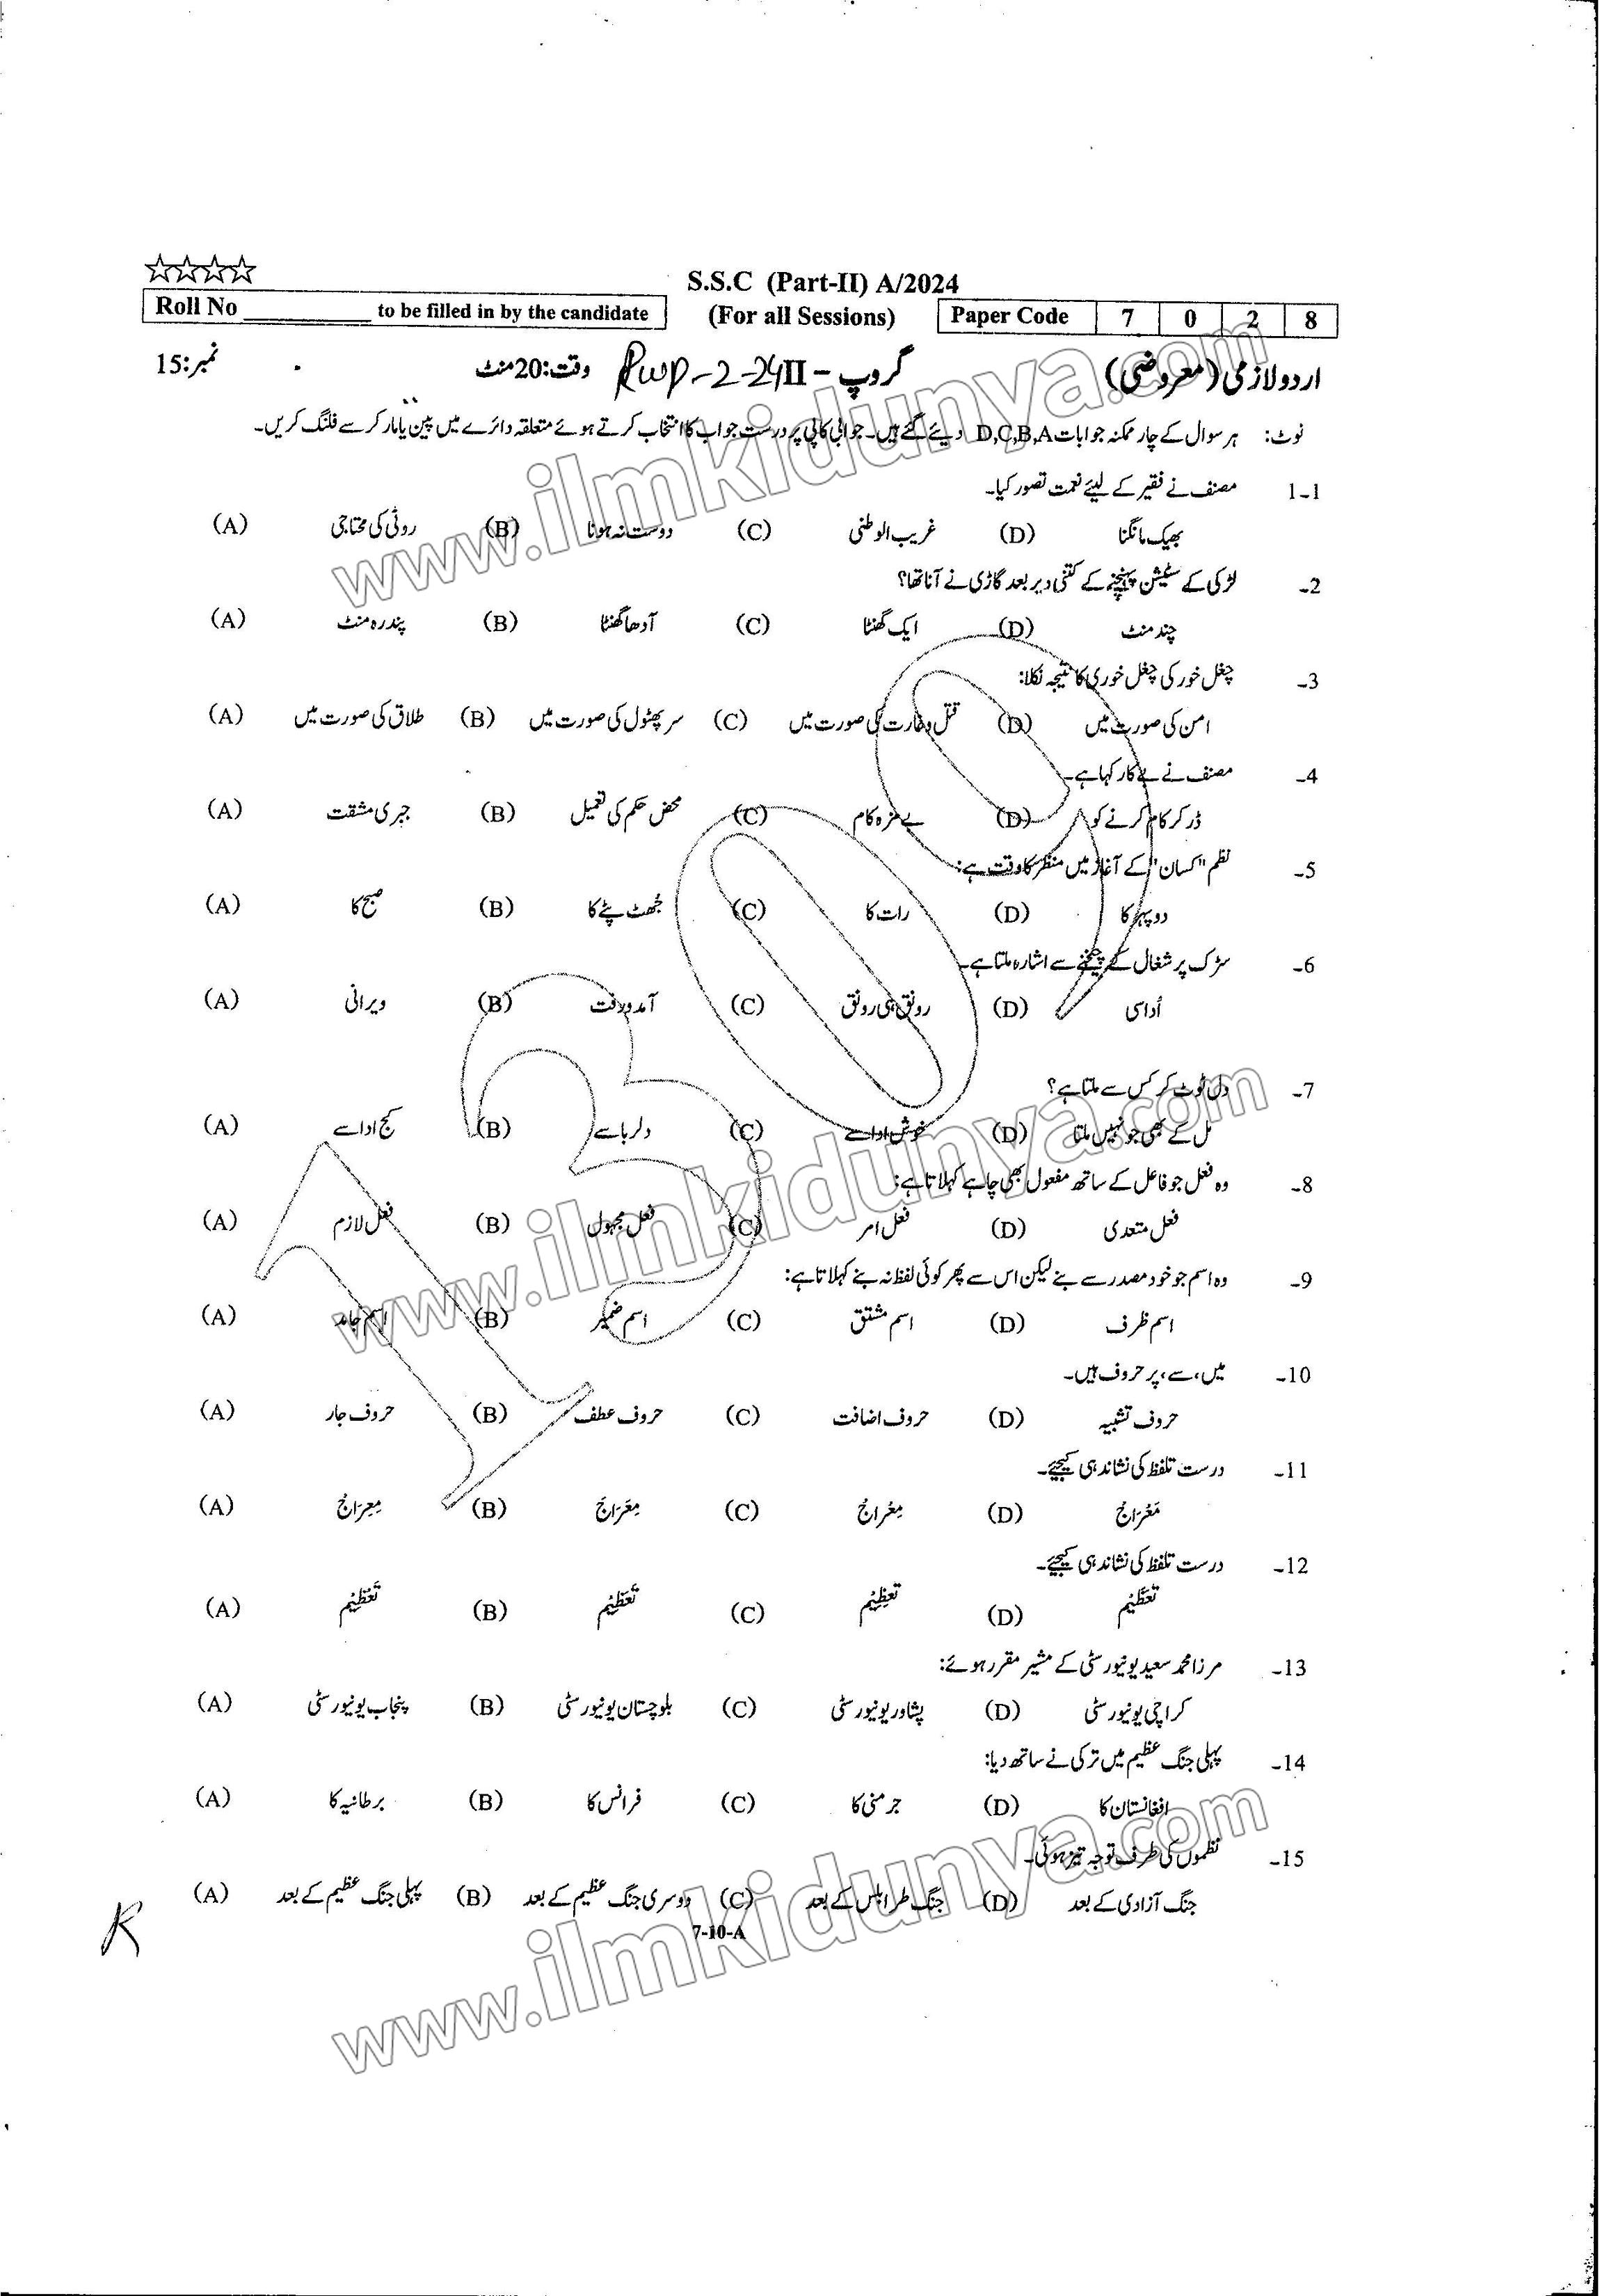 ☆☆☆☆
S.S.C (Part-II) A/2024
Roll No __________ to be filled in by the candidate (For all Sessions) Paper Code 7 0 2 8
اردو لازمی (معروضی) گروپ – II Rwp-2-24 وقت:20 منٹ نمبر:15
نوٹ: ہر سوال کے چار ممکنہ جوابات D,C,B,A دیئے گئے ہیں۔ جوابی کاپی پر درست جواب کا انتخاب کرتے ہوئے متعلقہ دائرے میں پین یا مارکر سے فلنگ کریں۔
1-1 مصنف نے فقیر کے لیئے نعمت تصور کیا۔
(A) روٹی کی محتاجی (B) دوست نہ ہونا (C) غریب الوطنی (D) بھیک مانگنا
2- لڑکی کے سٹیشن پہنچنے کے کتنی دیر بعد گاڑی نے آنا تھا؟
(A) پندرہ منٹ (B) آدھا گھنٹا (C) ایک گھنٹا (D) چند منٹ
3- چغل خور کی چغل خوری کا نتیجہ نکلا:
(A) طلاق کی صورت میں (B) سر پھٹول کی صورت میں (C) قتل و غارت کی صورت میں (D) امن کی صورت میں
4- مصنف نے بے کار کہا ہے۔
(A) جبری مشقت (B) محض حکم کی تعمیل (C) بے مزہ کام (D) ڈر کر کام کرنے کو
5- نظم "کسان" کے آغاز میں منظر کا وقت ہے:
(A) صبح کا (B) جُھٹ پٹے کا (C) رات کا (D) دوپہر کا
6- سڑک پر شغال کے چیخنے سے اشارہ ملتا ہے۔
(A) ویرانی (B) آمدورفت (C) رونق ہی رونق (D) اُداسی
7- دل ٹوٹ کر کس سے ملتا ہے؟
(A) کج ادا سے (B) دلربا سے (C) خوش ادا سے (D) مل کے بھی جو نہیں ملتا
8- وہ فعل جو فاعل کے ساتھ مفعول بھی چاہے کہلاتا ہے:
(A) فعل لازم (B) فعل مجہول (C) فعل امر (D) فعل متعدی
9- وہ اسم جو خود مصدر سے بنے لیکن اس سے پھر کوئی لفظ نہ بنے کہلاتا ہے:
(A) اسم جامد (B) اسم ضمیر (C) اسم مشتق (D) اسم ظرف
10- میں، سے، پر حروف ہیں۔
(A) حروف جار (B) حروف عطف (C) حروف اضافت (D) حروف تشبیہ
11- درست تلفظ کی نشاندہی کیجیئے۔
(A) (B) (C) (D)
12- درست تلفظ کی نشاندہی کیجیئے۔
(A) (B) (C) (D)
13- مرزا محمد سعید یونیورسٹی کے مشیر مقرر ہوئے:
(A) پنجاب یونیورسٹی (B) بلوچستان یونیورسٹی (C) پشاور یونیورسٹی (D) کراچی یونیورسٹی
14- پہلی جنگ عظیم میں ترکی نے ساتھ دیا:
(A) برطانیہ کا (B) فرانس کا (C) جرمنی کا (D) افغانستان کا
15- نظموں کی طرف توجہ تیز ہوئی۔
(A) پہلی جنگ عظیم کے بعد (B) دوسری جنگ عظیم کے بعد (C) جنگ طرابلس کے بعد (D) جنگ آزادی کے بعد
7-10-A
www.ilmkidunya.com
www.ilmkidunya.com
www.ilmkidunya.com